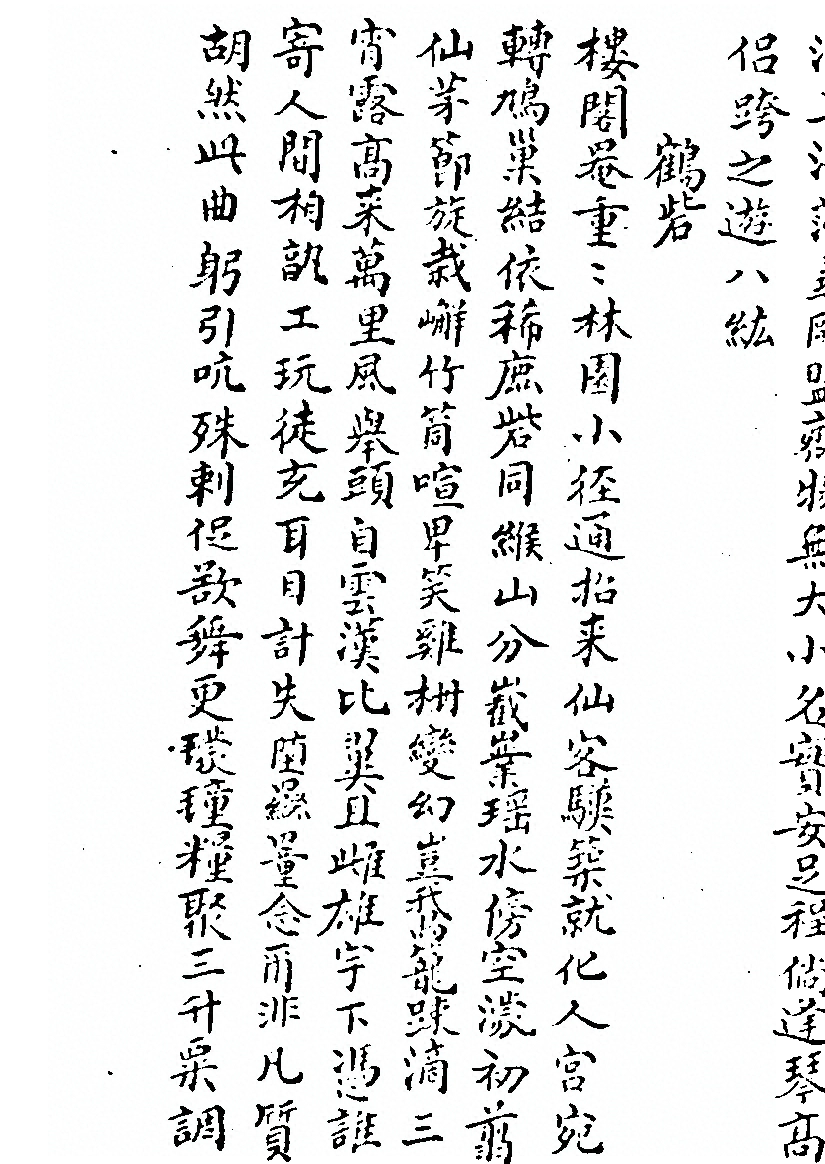 無大小名實安足程倘逢琴高
侶跨之遊八紘
鶴砦
樓閣重〻林園小径通招来仙客築就化人宮宛
轉鳩巢結依稀鹿砦同緱山分巀嶪瑶水傍空濛初翦
仙茅節旋栽嶰竹筒喧卑笑雞柵變幻豈鵞籠踈滴三
宵露高来萬里風舉頭自雲漢比翼且雌雄宇下憑誰
寄人間工玩徒充耳目計失量念爾非凡質
胡然此曲躬引吭殊刺促舞更糧聚三升粟調